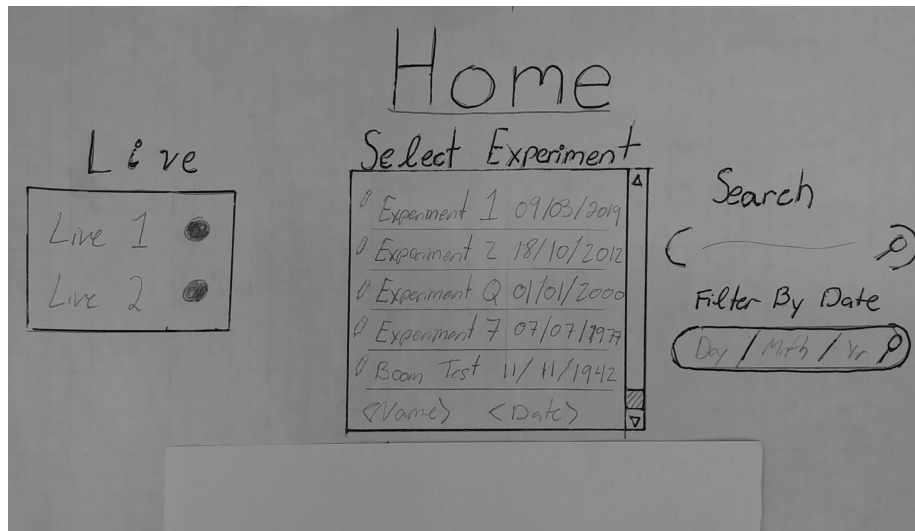 Home
Live
Live 1
Live 2
Select Experiment
Experiment 1 09/03/2019
Experiment 2 18/10/2012
Experiment Q 01/01/2000
Experiment 7 07/07/1977
Boom Test 11/11/1942
<Name> <Date>
Search
Filter By Date
Day / Mnth / Yr